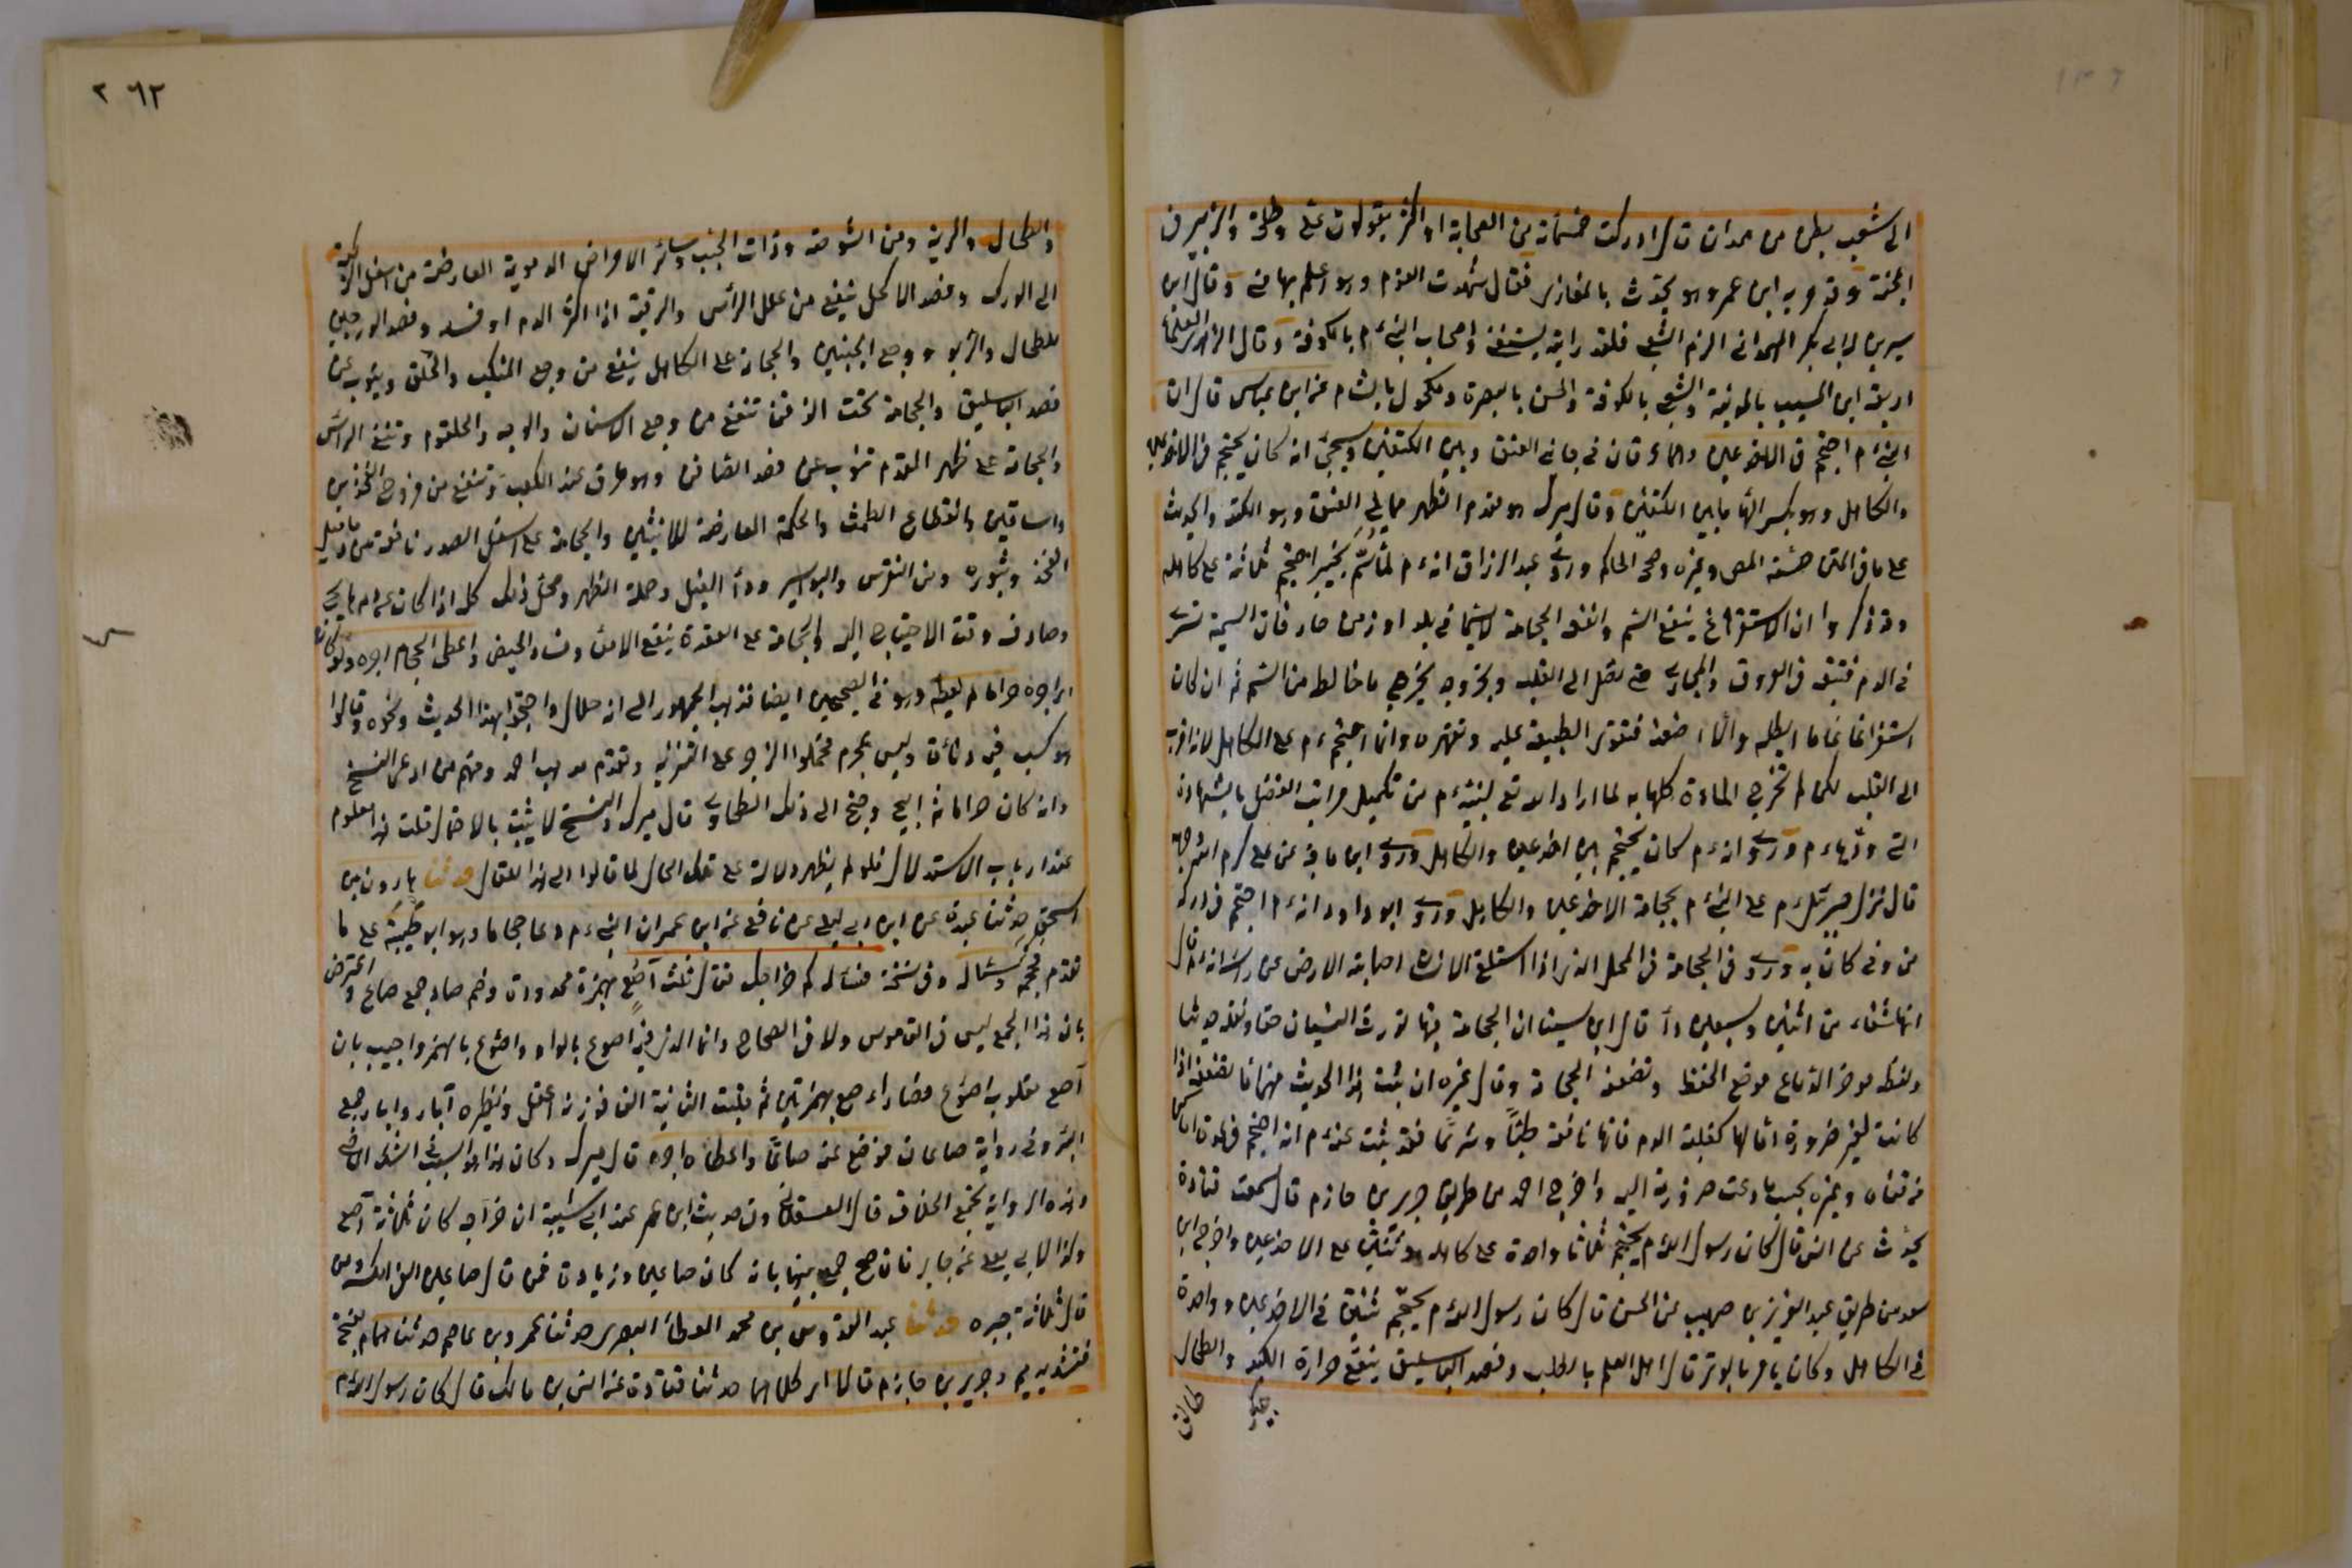 الى شعب بطن من همدان قال ادركت خمسمائة من الصحابة او اكثر يقولون علي وطلحة والزبير في
الجنة وقد مر به ابن عمر وهو يحدث بالمغازي فقال شهدت القوم وهو اعلم بها مني وقال ابن
سيرين لابي بكر الهمداني الزم الشعبي فلقد رايته يستفتى واصحاب النبي ءم بالكوفة وقال الزهري العلماء
اربعة ابن المسيب بالمدينة والشعبي بالكوفة والحسن بالبصرة ومكحول بالشام عن ابن عباس قال ان
النبي ءم احتجم في الاخدعين وهما عرقان في جانبي العنق وبين الكتفين وسيجئ انه كان يحتجم في الاخدعين
والكاهل وهو بكسر الهاء ما بين الكتفين وقال ميرك هو مقدم الظهر مما يلي العنق وهو الكتد والحديث
على ما في المتن حسنه المص وغيره وصححه الحاكم وروى عبد الرزاق انه ءم لما سم بخيبر احتجم ثلاثة على كاهله
وقد ذكروا ان الاستفراغ ينفع السم وانفعه الحجامة لا سيما في بلد او زمن حار فان السمية تسري
في الدم فتتبعه في العروق والمجاري حتى تصل الى القلب وبخروجه يخرج ما خالطه من السم ثم ان كان
استفراغا عاما ابطله والا اضعفه فتقوى الطبيعة عليه وتقهره وانما احتجم ءم على الكاهل لانه اقرب
الى القلب لكن لم تخرج المادة كلها به لما اراد الله تع لنبيه ءم من تكميل مراتب الفضل بالشهادة
التي ودها ءم وروى انه ءم كان يحتجم بين اخدعيه والكاهل وروى ابن ماجة عن علي كرم الله وجهه
قال نزل جبرئيل ءم على النبي ءم بحجامة الاخدعين والكاهل وروى ابو داود انه ءم احتجم في وركه
من وثي كان به وروى في الحجامة في المحل الذي اذا استلقى الانسان اصابته الارض من راسه انه ءم قال
انها شفاء من اثنين وسبعين داء قال ابن سينا ان الحجامة فيها تورث النسيان حقا ونقله حديثا
ولفظه مؤخر الدماغ موضع الحفظ وتضعفه الحجامة وقال غيره ان ثبت هذا الحديث فهي انما تضعفه اذا
كانت لغير ضرورة اما لها كغلبة الدم فانها نافعة طبا وشرعا فقد ثبت عنه ءم انه احتجم في عدة اماكن
من قفاه وغيره بحسب ما دعت ضرورته اليه واخرج احمد من طريق جرير بن حازم قال سمعت قتادة
يحدث عن انس قال كان رسول الله ءم يحتجم ثلاثا واحدة على كاهله وثنتين على الاخدعين واخرج ابن
سعد من طريق عبد العزيز بن صهيب عن الحسن قال كان رسول الله ءم يحتجم ثنتين في الاخدعين وواحدة
في الكاهل وكان يأمر بالوتر قال اهل العلم بالطب وفصد الباسليق ينفع حرارة الكبد والطحال
٢٦٢
والطحال والرية ومن الشوصة وذات الجنب وسائر الامراض الدموية العارضة من اسفل الركبة
الى الورك وفصد الاكحل ينفع من علل الرأس والرقبة اذا اكثر الدم او فسد وفصد الودجين
للطحال والربو ووجع الجبينين والحجامة على الكاهل ينفع من وجع المنكب والحلق وينوب عن
فصد الباسليق والحجامة تحت الذقن تنفع من وجع الاسنان والوجه والحلقوم وتنقي الراس
والحجامة على ظهر القدم تنوب عن فصد الصافن وهو عرق عند الكعب وتنفع من قروح الفخذين
والساقين وانقطاع الطمث والحكة العارضة للانثيين والحجامة على اسفل الصدر نافعة من دماميل
الفخذ وبثوره ومن النقرس والبواسير وداء الفيل وحكة الظهر ومحل ذلك كله اذا كان عن دم هايج
وصادف وقت الاحتياج اليه والحجامة على المقعدة ينفع الامعاء وفساد الحيض واعطى الحجام اجره ولو كان
اي اجره حراما لم يعطه وهو في الصحيحين ايضا فذهب الجمهور الى انه حلال واحتجوا بهذا الحديث ونحوه وقالوا
هو كسب فيه دناءة وليس بمحرم فحملوا الزجر على التنزيه وتقدم مذهب احمد ومنهم من ادعى النسخ
وانه كان حراما ثم ابيح وجنح الى ذلك الطحاوي قال ميرك والنسخ لا يثبت بالاحتمال قلت هذا معلوم
عند ارباب الاستدلال فلو لم يظهر دلالة على تلك الحال لما قالوا الى هذا المقال حدثنا هارون بن
اسحق حدثنا عبدة عن ابن ابي ليلى عن نافع عن ابن عمر ان النبي ءم دعا حجاما وهو ابو طيبة على ما
تقدم فحجمه وسأله وفي نسخة فسأله كم خراجك فقال ثلثة آصع بهمزة ممدودة وضم صاد جمع صاع واعترض
بان هذا الجمع ليس في القاموس ولا في الصحاح وانما الذي فيه اصوع بالواو واصؤع بالهمز واجيب بان
آصع مقلوب اصؤع فصار اءصع بهمزتين ثم قلبت الثانية الفا فوزنه اعفل ونظيره آبار وابار جمع
البئر وفي رواية صاعان فوضع عنه صاعا واعطاه اجره قال ميرك وكان هذا هو السبب في الشك الماضي
وبهذه الرواية يجمع الخلاف قال العسقلاني وفي حديث ابن عمر عند ابن ابي شيبة ان خراجه كان ثلاثة آصع
وكذا لابي يعلى عن جابر فان صح جمع بينهما بانه كان صاعين وزيادة فمن قال صاعين الغى الكسر ومن
قال ثلاثة جبره حدثنا عبد القدوس بن محمد العطار البصري حدثنا عمرو بن عاصم حدثنا همام بفتحة
فتشديد ميم وجرير بن حازم قالا اي كلاهما حدثنا قتادة عن انس بن مالك قال كان رسول الله ءم